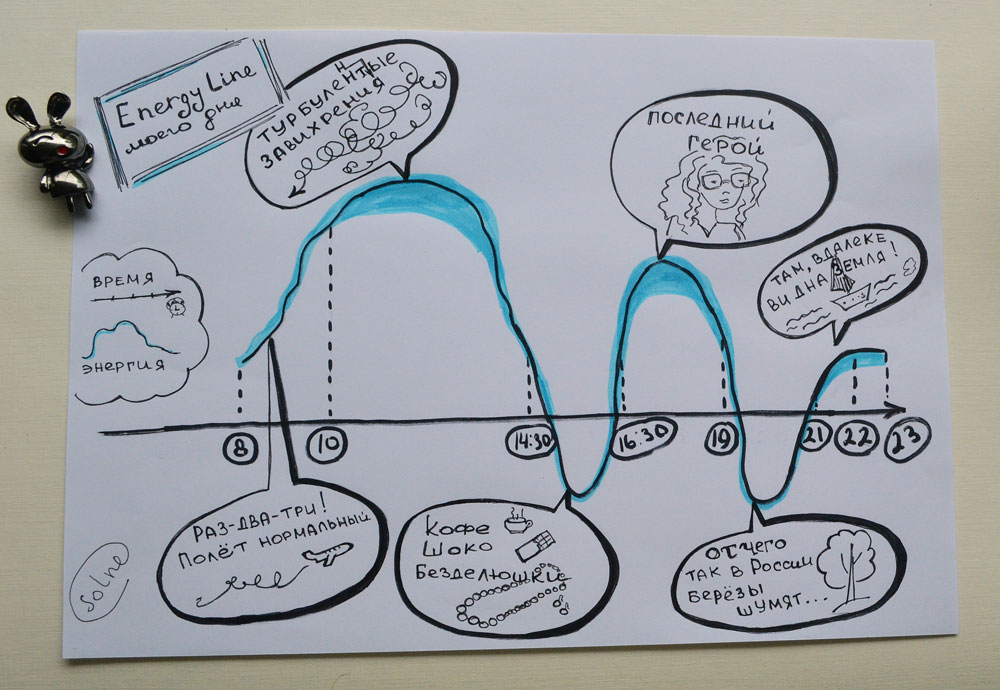 Energy Line
моего дня
ТУРБУЛЕНТНЫЕ
ЗАВИХРЕНИЯ
ПОСЛЕДНИЙ
ГЕРОЙ
ТАМ, ВДАЛЕКЕ
ВИДНА ЗЕМЛЯ!
ВРЕМЯ
ЭНЕРГИЯ
8
10
14:30
16:30
19
21
22
23
РАЗ-ДВА-ТРИ!
ПОЛЁТ НОРМАЛЬНЫЙ
КОФЕ
ШОКО
БЕЗДЕЛЮШКИ
ОТЧЕГО
ТАК В РОССИИ
БЕРЁЗЫ
ШУМЯТ...
Solne